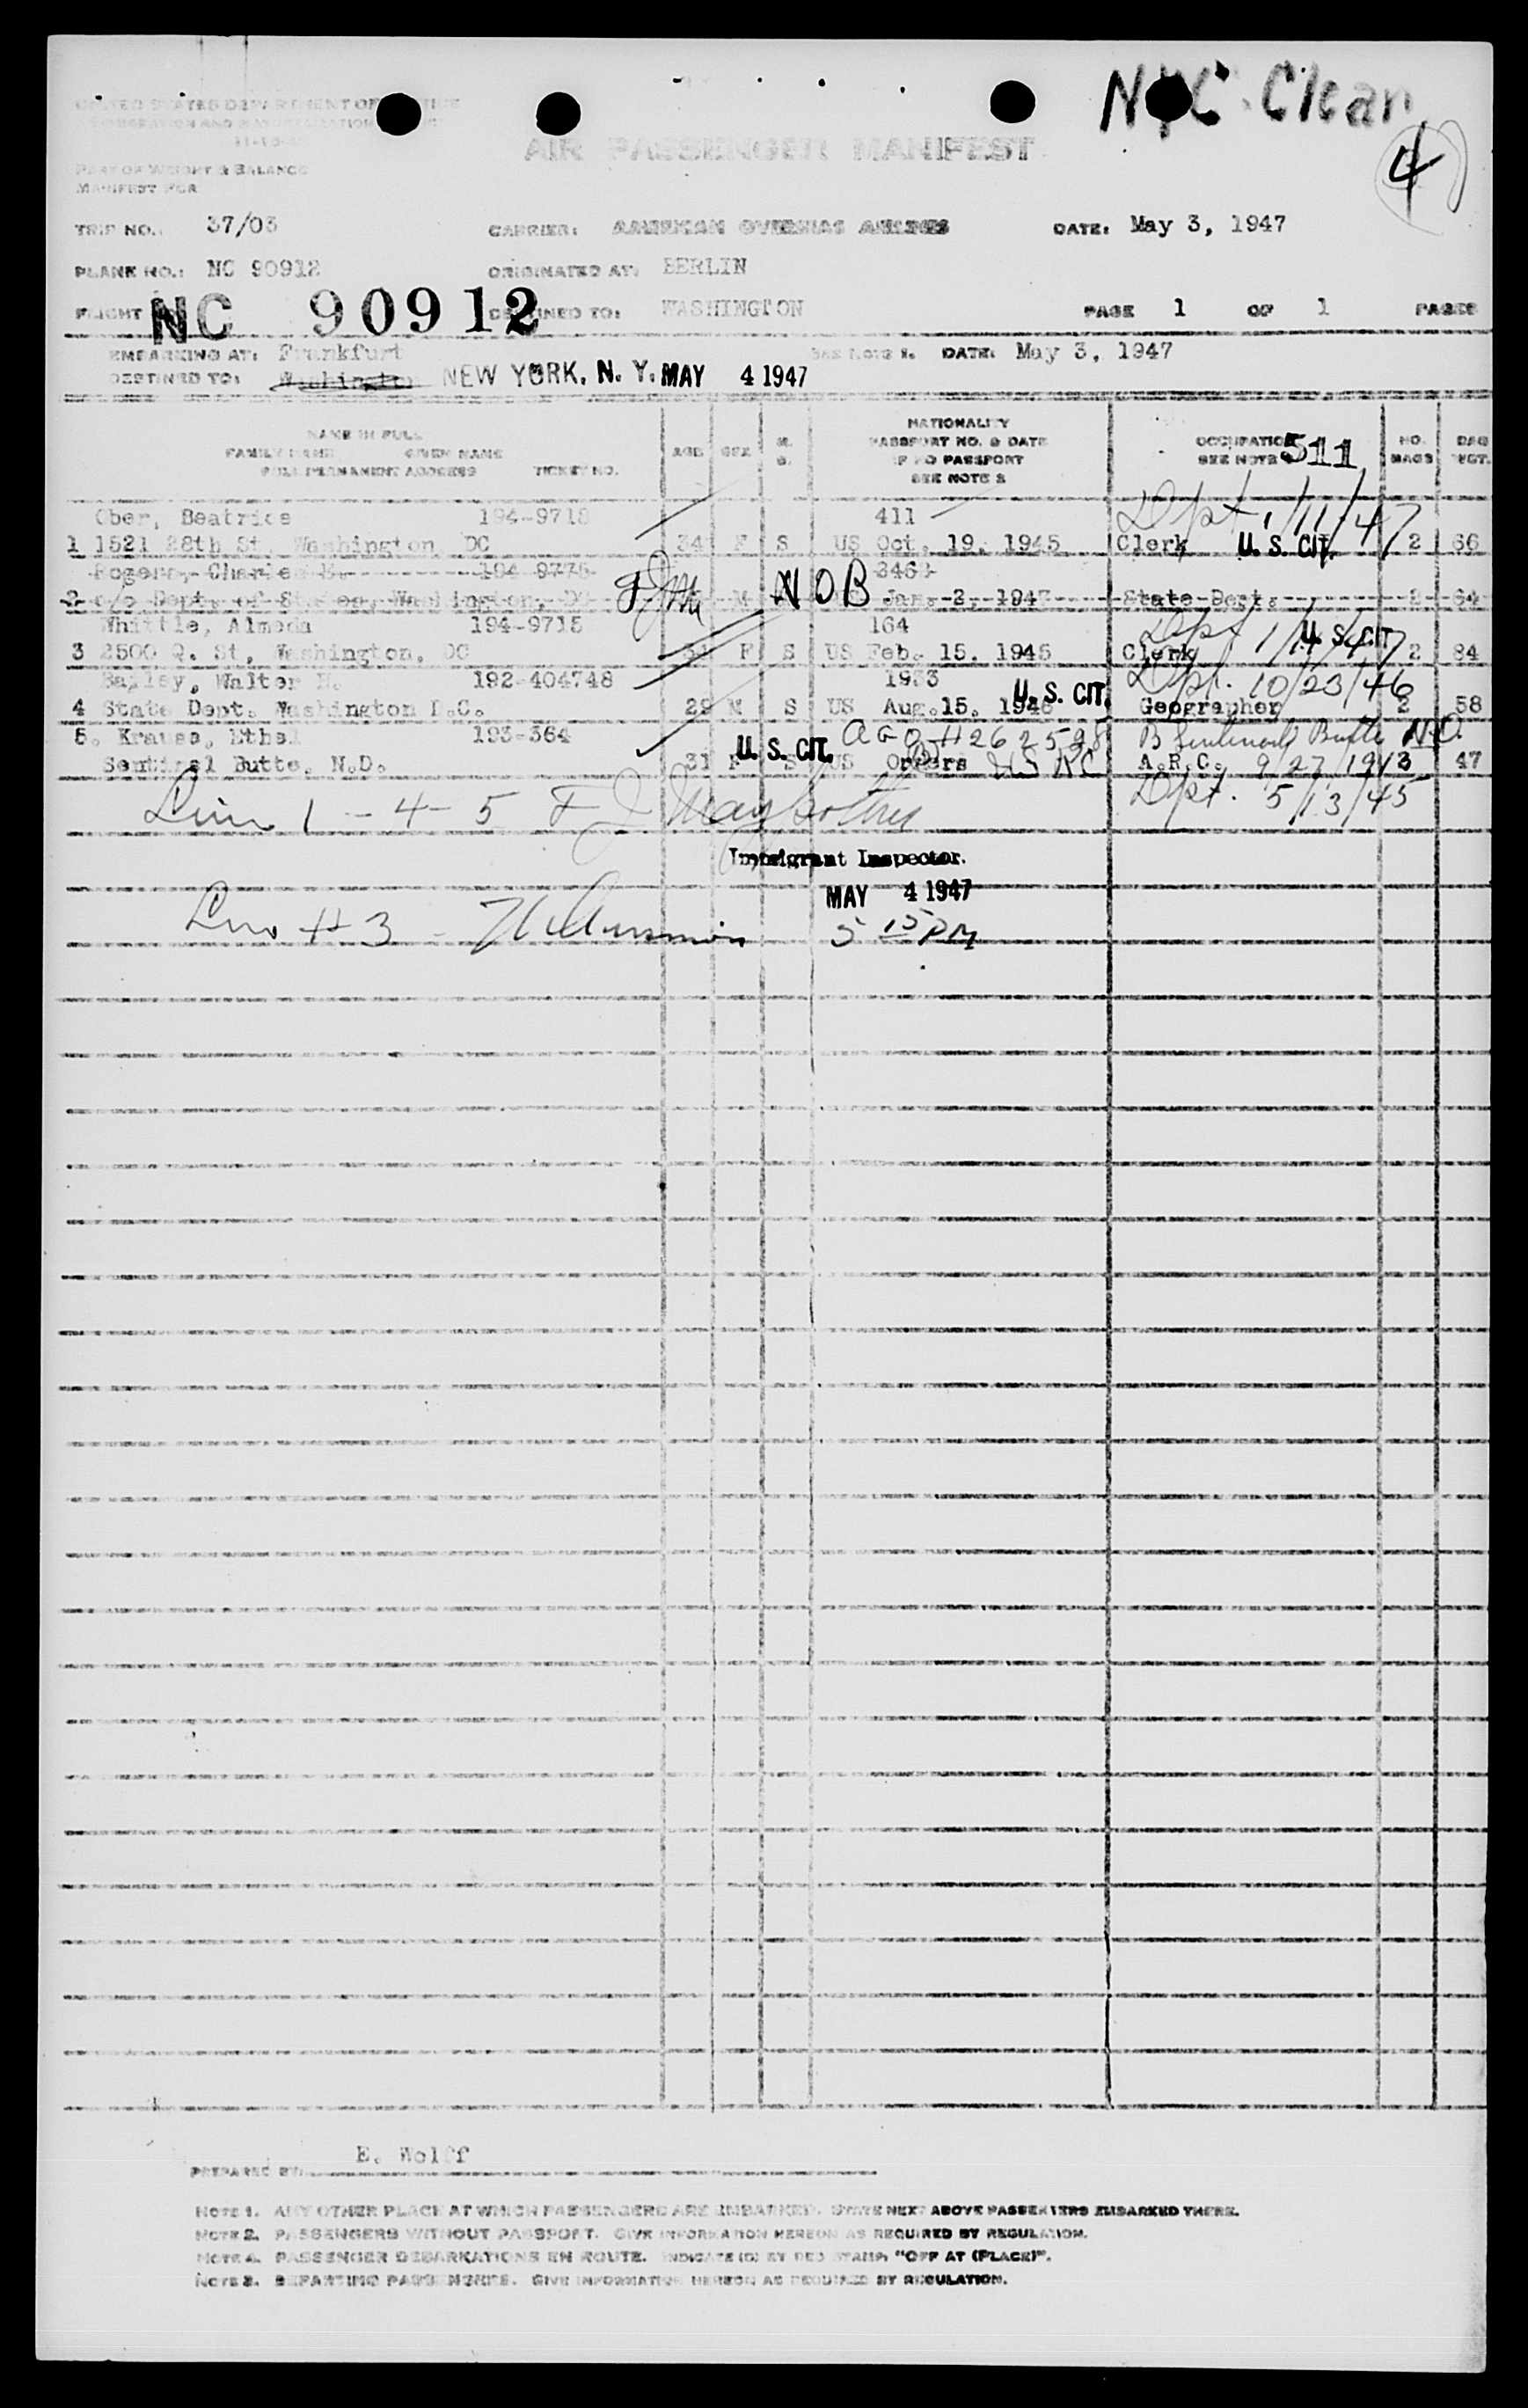 NYC Clean
4
UNITED STATES DEPARTMENT OF
IMMIGRATION AND NATURALIZATION
AIR PASSENGER MANIFEST
PART OF WEIGHT & BALANCE
MANIFEST FOR
TRIP NO.: 37/03 CARRIER: AMERICAN OVERSEAS AIRLINES DATE: May 3, 1947
PLANE NO.: NC 90912 ORIGINATED AT: BERLIN
FLIGHT NC 90912 DESTINED TO: WASHINGTON PAGE 1 OF 1 PAGES
EMBARKING AT: Frankfurt SEE NOTE 1. DATE: May 3, 1947
DESTINED TO: Washington NEW YORK, N. Y. MAY 4 1947
NAME IN FULL
FAMILY NAME GIVEN NAME
FULL PERMANENT ADDRESS TICKET NO.
AGE SEX M. S.
NATIONALITY
PASSPORT NO. & DATE
IF NO PASSPORT
SEE NOTE 2
OCCUPATION
SEE NOTE 511
NO. BAGS BAG WGT.
Ober, Beatrice 194-9718 411 Dpt. 1/11/47
1 1521 28th St. Washington DC 34 F S US Oct. 19. 1945 Clerk U. S. CIT. 2 66
Rogers, Charles 194-9775
2 c/o Dept. of States, Washington, DC FJM M NOB Jan. 2, 1947 State Dept. 2 64
Whittle, Almeda 194-9715 164 Dpt 1/14/47 U. S. CIT.
3 2500 Q. St, Washington, DC F S US Feb. 15. 1945 Clerk 2 84
Bailey, Walter H. 192-404748 1933 U. S. CIT. Dpt. 10/23/46
4 State Dept. Washington D.C. 29 M S US Aug. 15. 1946 Geographer 2 58
5. Krause, Ethel 193-364 U. S. CIT. AGO H262598 B Sentinel Butte N.D.
Sentinel Butte, N.D. 31 F S US Orders US RC A.R.C. 9/27/1913 47
Dpt. 5/13/45
Line 1 - 4 - 5 F J
Immigrant Inspector.
MAY 4 1947
Line # 3 - 5 15 PM
PREPARED BY: E. Wolff
NOTE 1. ANY OTHER PLACE AT WHICH PASSENGERS ARE EMBARKED. STATE NEXT ABOVE PASSENGERS EMBARKED THERE.
NOTE 2. PASSENGERS WITHOUT PASSPORT. GIVE INFORMATION HEREON AS REQUIRED BY REGULATION.
NOTE 4. PASSENGER DEBARKATIONS EN ROUTE. INDICATE (D) BY RED STAMP, "OFF AT (PLACE)".
NOTE 3. DEPARTING PASSENGERS. GIVE INFORMATION HEREON AS REQUIRED BY REGULATION.